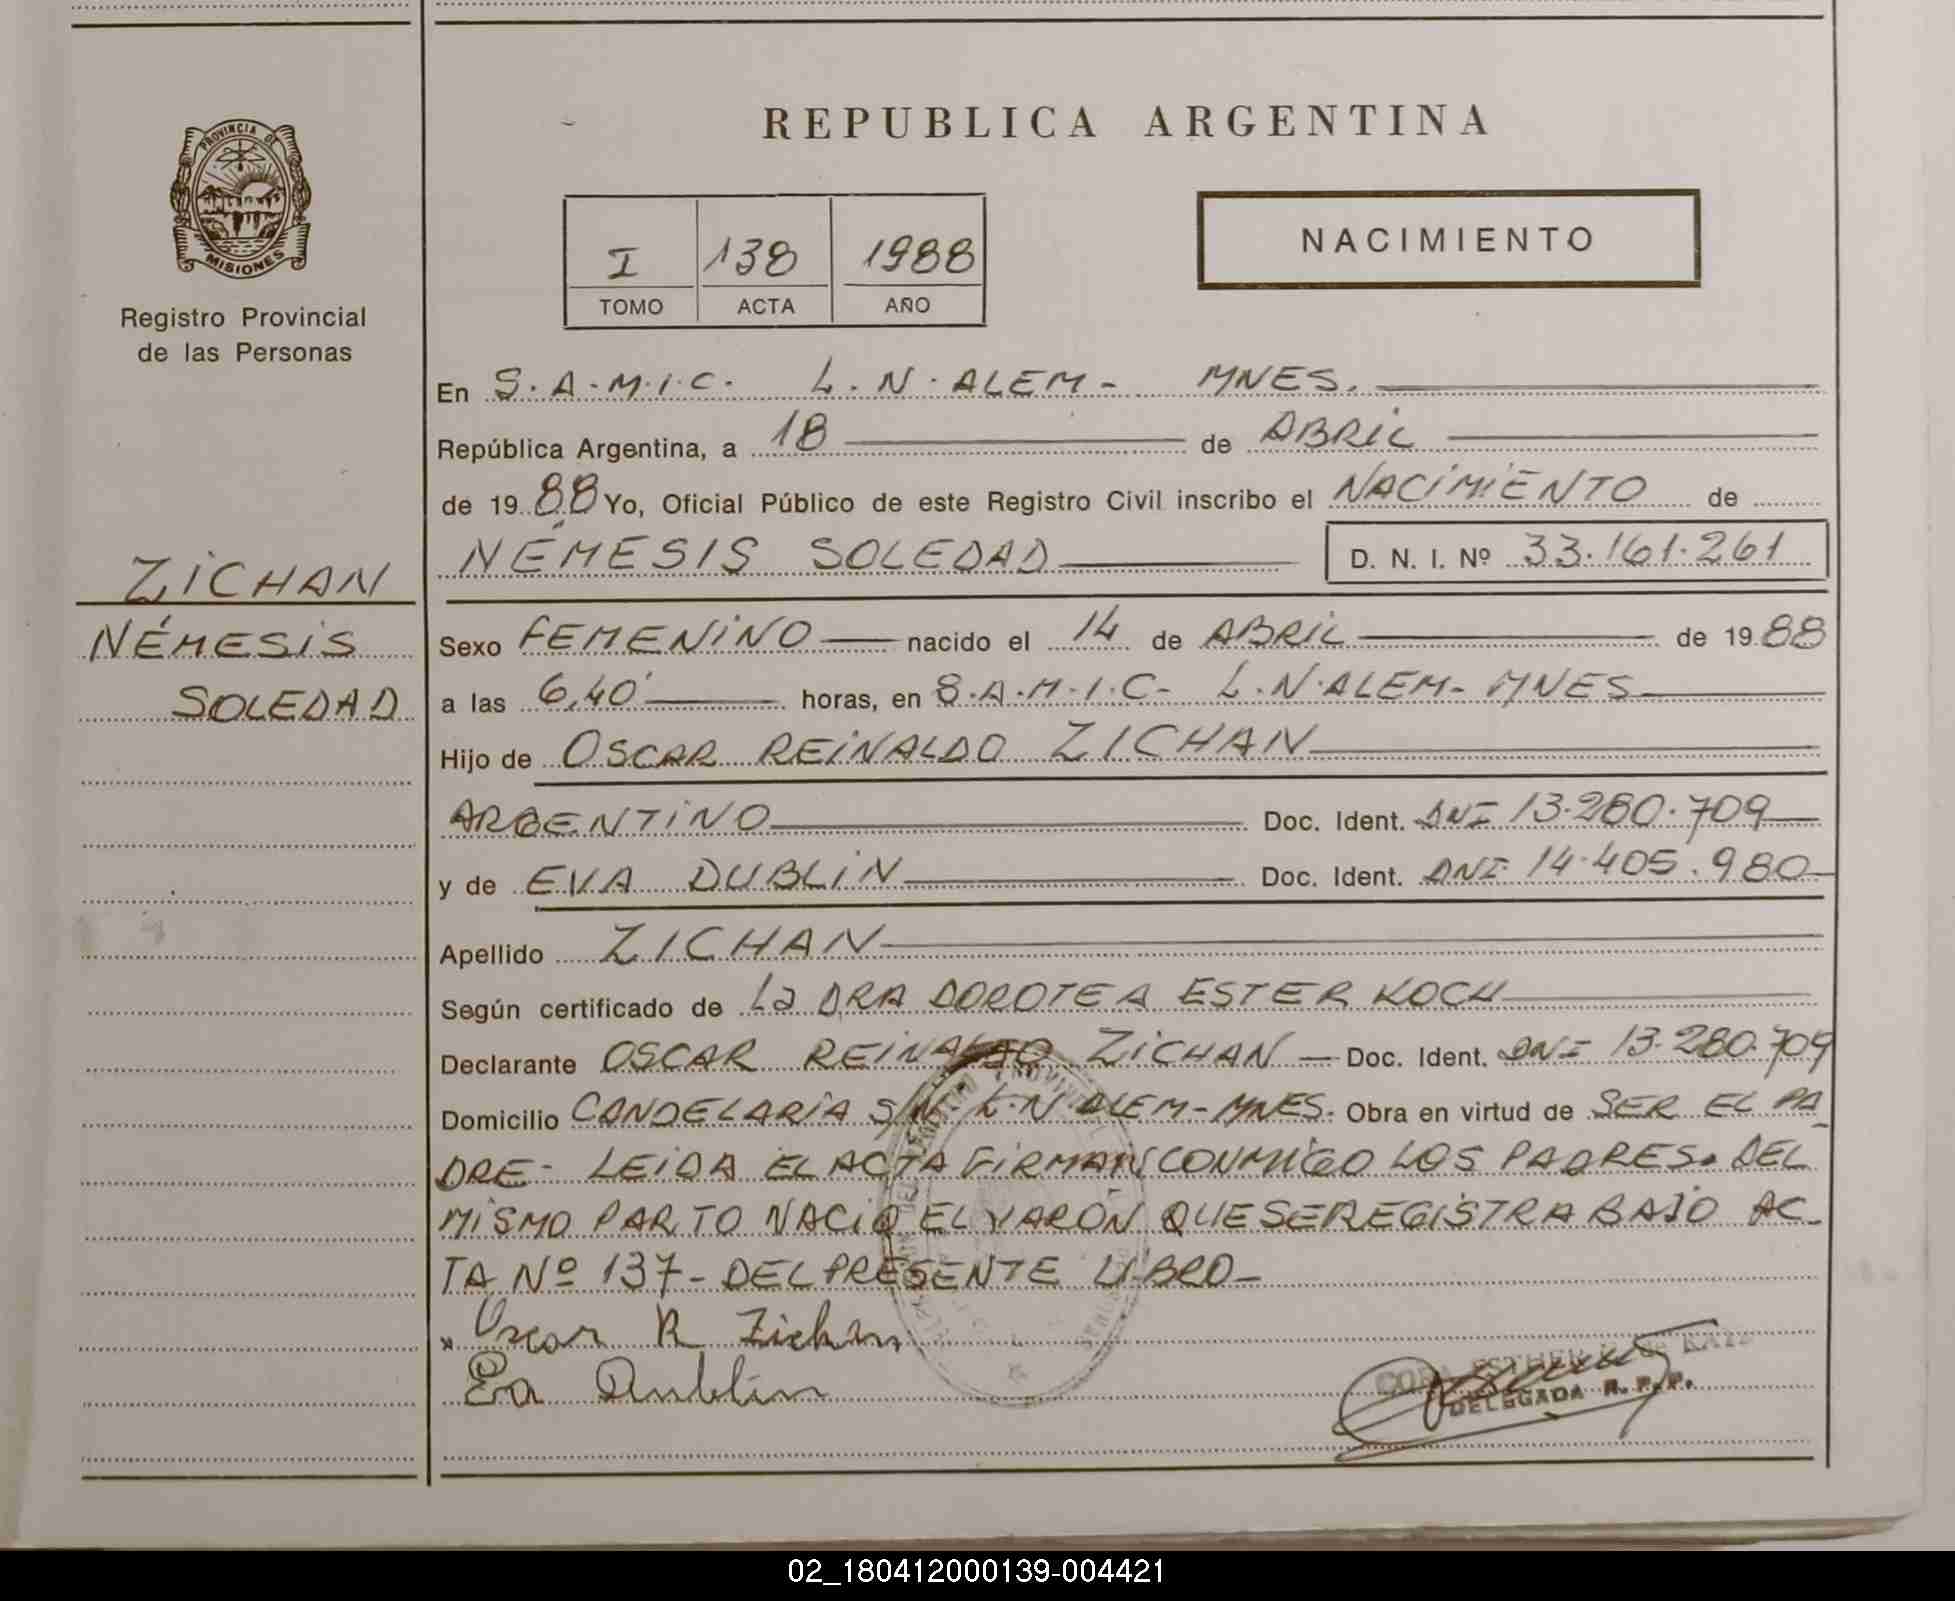 PROVINCIA DE
MISIONES
Registro Provincial
de las Personas
ZICHAN
NÉMESIS
SOLEDAD
REPUBLICA ARGENTINA
I 138 1988
TOMO ACTA AÑO
NACIMIENTO
En S.A.M.I.C. L.N.ALEM- MNES.
República Argentina, a 18 de ABRIL
de 19 88 Yo, Oficial Público de este Registro Civil inscribo el NACIMIENTO de
NÉMESIS SOLEDAD D. N. I. Nº 33.161.261
Sexo FEMENINO nacido el 14 de ABRIL de 19 88
a las 6,40' horas, en S.A.M.I.C- L.N.ALEM- MNES
Hijo de OSCAR REINALDO ZICHAN
ARGENTINO Doc. Ident. DNI 13.280.709
y de EVA DUBLIN Doc. Ident. DNI 14.405.980
Apellido ZICHAN
Según certificado de La DRA DOROTEA ESTER KOCH
Declarante OSCAR REINALDO ZICHAN Doc. Ident. DNI 13.280.709
Domicilio CANDELARIA S/N- L.N.ALEM-MNES. Obra en virtud de SER EL PA
DRE- LEIDA EL ACTA FIRMAN CONMIGO LOS PADRES. DEL
MISMO PARTO NACIO EL VARÓN QUE SE REGISTRA BAJO AC-
TA Nº 137- DEL PRESENTE LIBRO-
Oscar R Zichan
Eva Dublin
DELEGADA R.P.P.
02_180412000139-004421